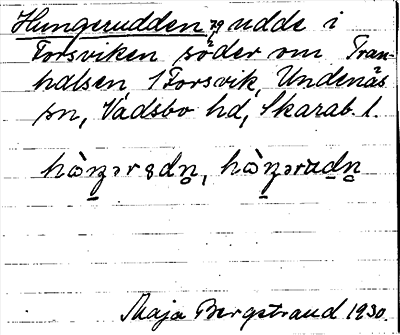 Hungerudden 79 udde i
Forsviken söder om Tran-
halsen, 1 Forsvik, Undenäs
sn, Vadsbo hd, Skarab. l.
Maja Bergstrand 1930.